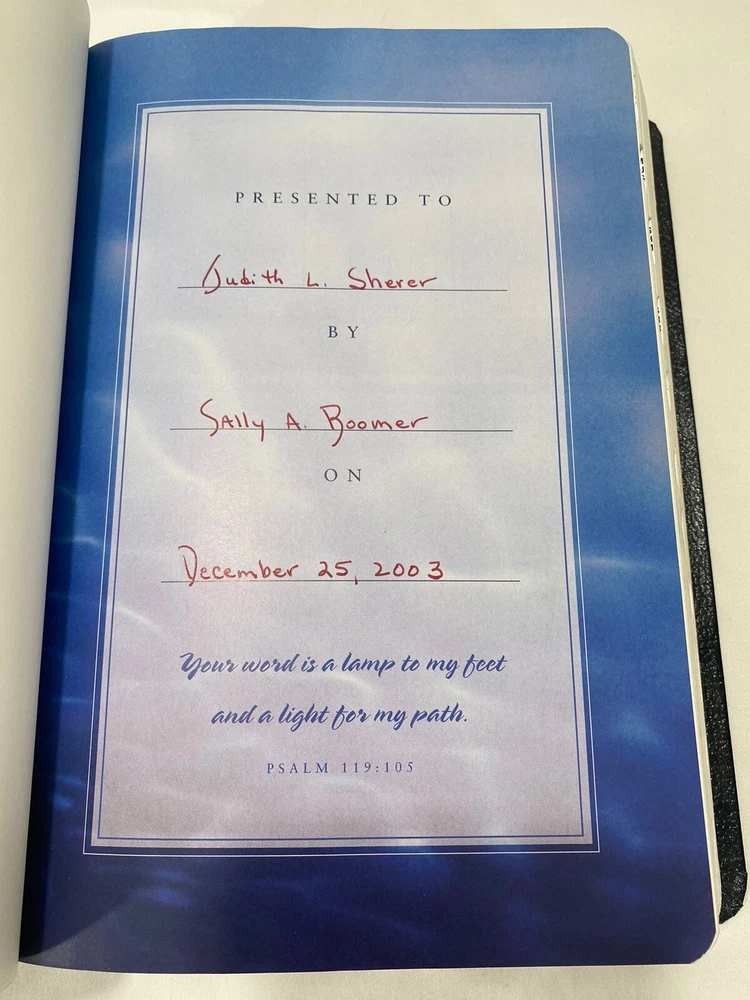 PRESENTED TO
Judith L. Sherer
BY
Sally A. Boomer
ON
December 25, 2003
Your word is a lamp to my feet
and a light for my path.
PSALM 119:105